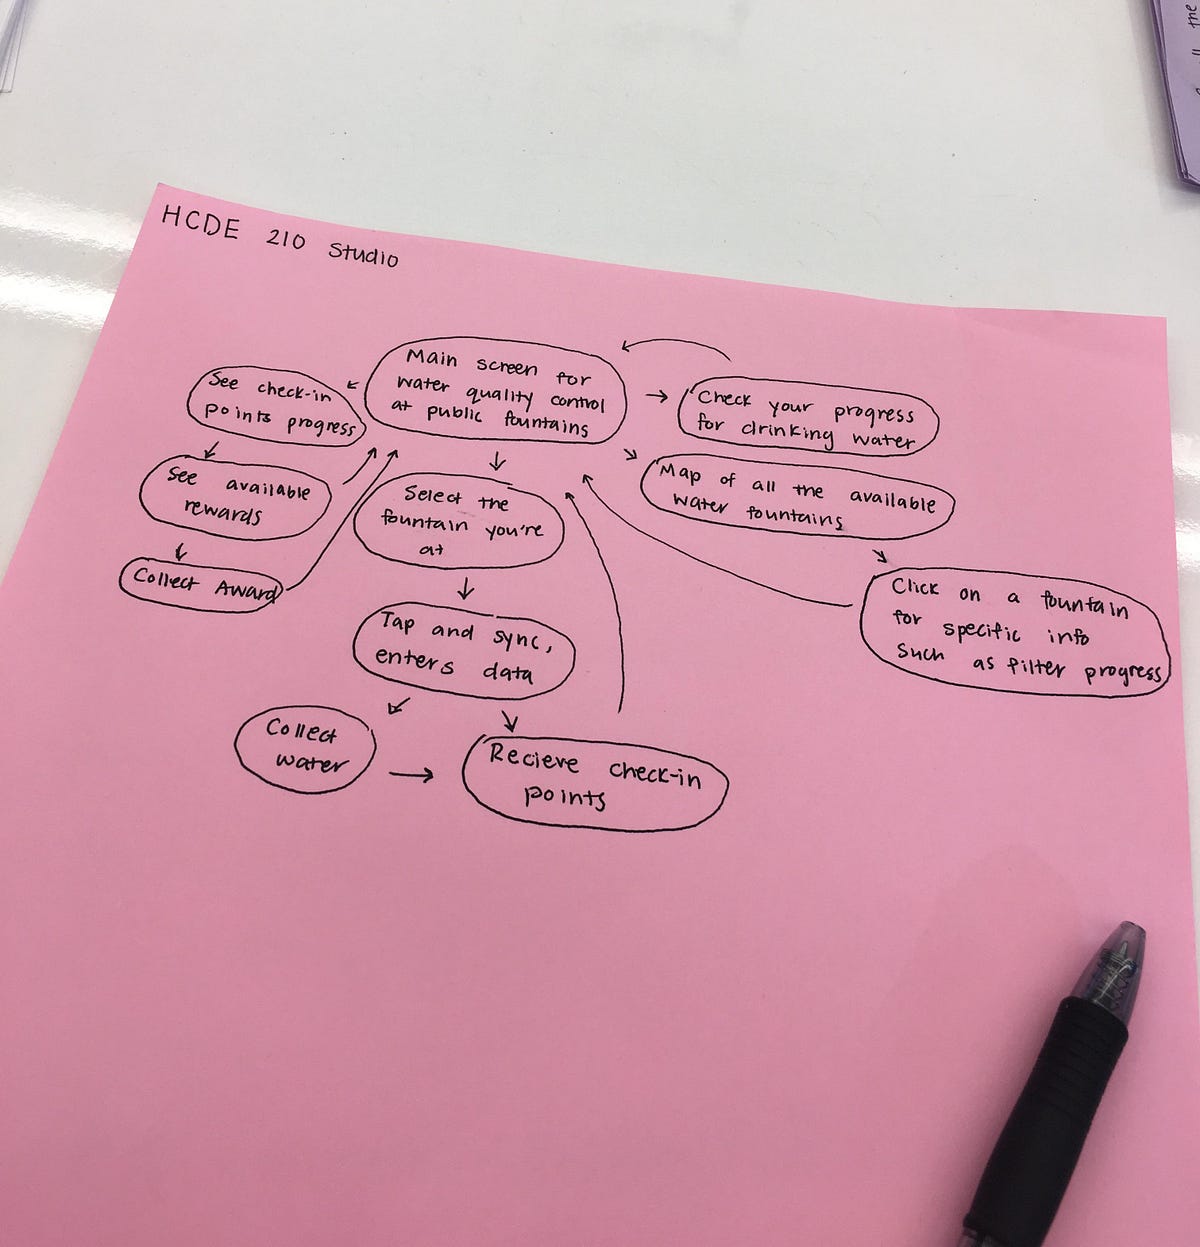 HCDE 210 Studio
Main screen for
water quality control
at public fountains
See check-in
points progress
See available
rewards
Collect Award
Select the
fountain you're
at
Tap and sync,
enters data
Collect
water
Recieve check-in
points
Check your progress
for drinking water
Map of all the available
water fountains
Click on a fountain
for specific info
such as filter progress
the